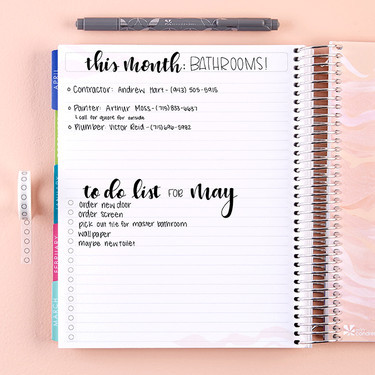 this month: BATHROOMS!
Contractor: Andrew Hart - (943) 505-5915
Painter: Arthur Moss - (715) 833-6637
call for quote for outside
Plumber Victor Reid - (715) 696-5982
to do list FOR May
order new door
order screen
pick out tile for master bathroom
wallpaper
maybe new toilet
APRIL
FEBRUARY
MARCH